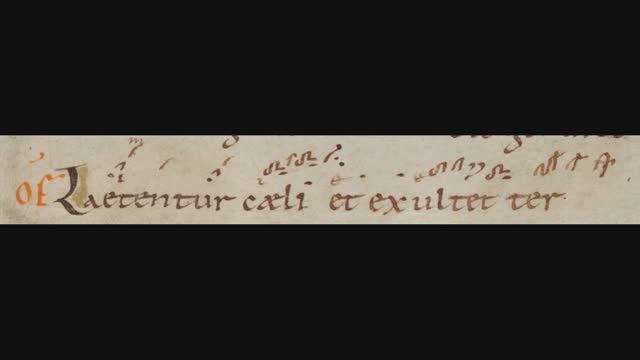 OF Laetentur cæli et exultet ter